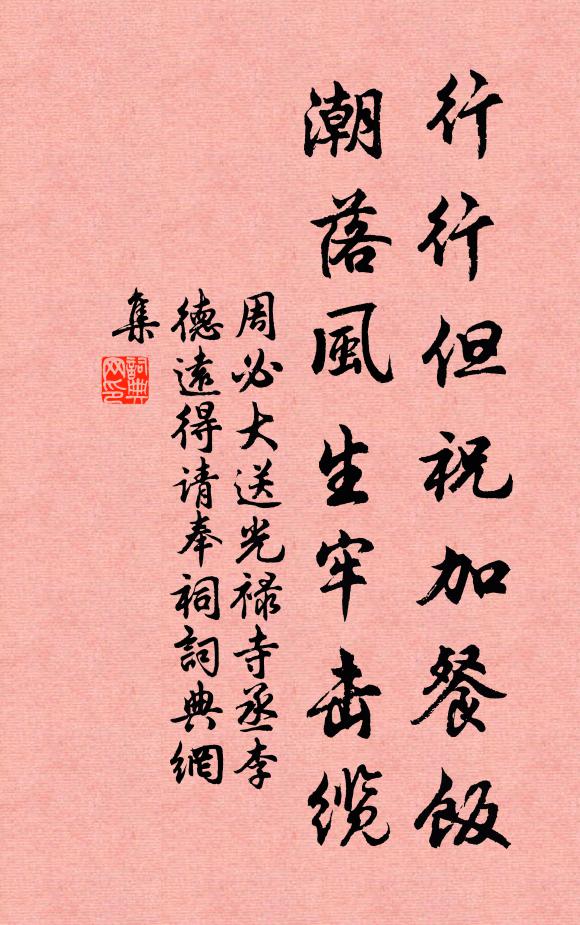 行行但祝加餐飯
潮落風生牢击缆
周必大送光禄寺丞李
德遠得请奉祠詞典網
集
詞典
网印